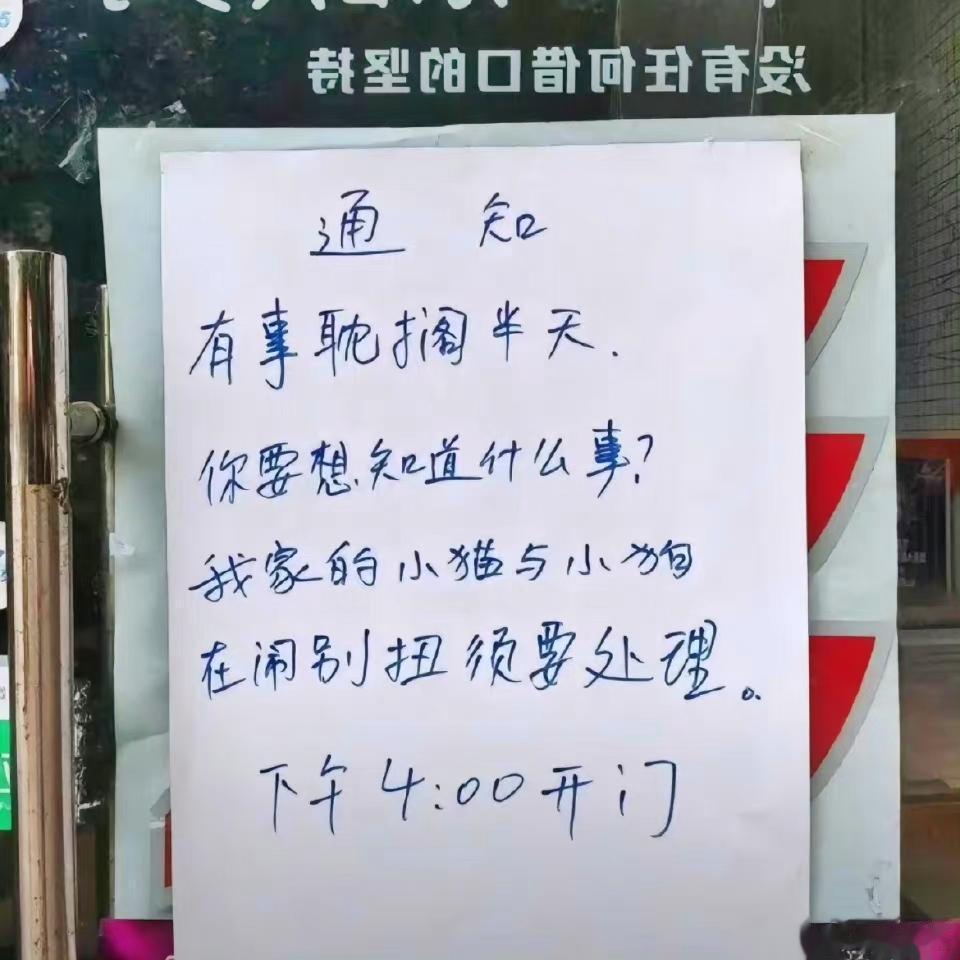 没有任何借口的坚持
通 知
有事耽搁半天.
你要想知道什么事?
我家的小猫与小狗
在闹别扭须要处理。
下午4:00开门